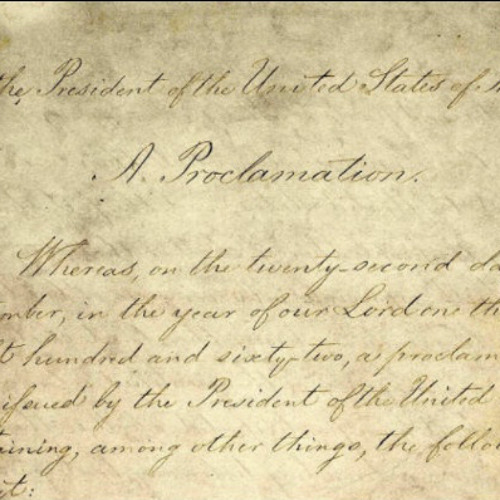 the President of the United States of
A Proclamation.
Whereas, on the twenty-second
in the year of our Lord one
hundred and sixty-two, a
issued by the President of the United
among other things, the